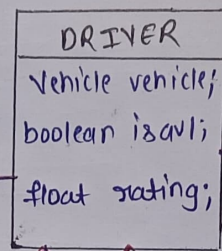 DRIVER
Vehicle vehicle;
boolean isavl;
float rating;